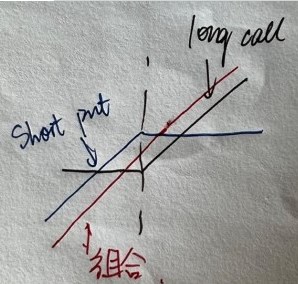 long call
short put
组合